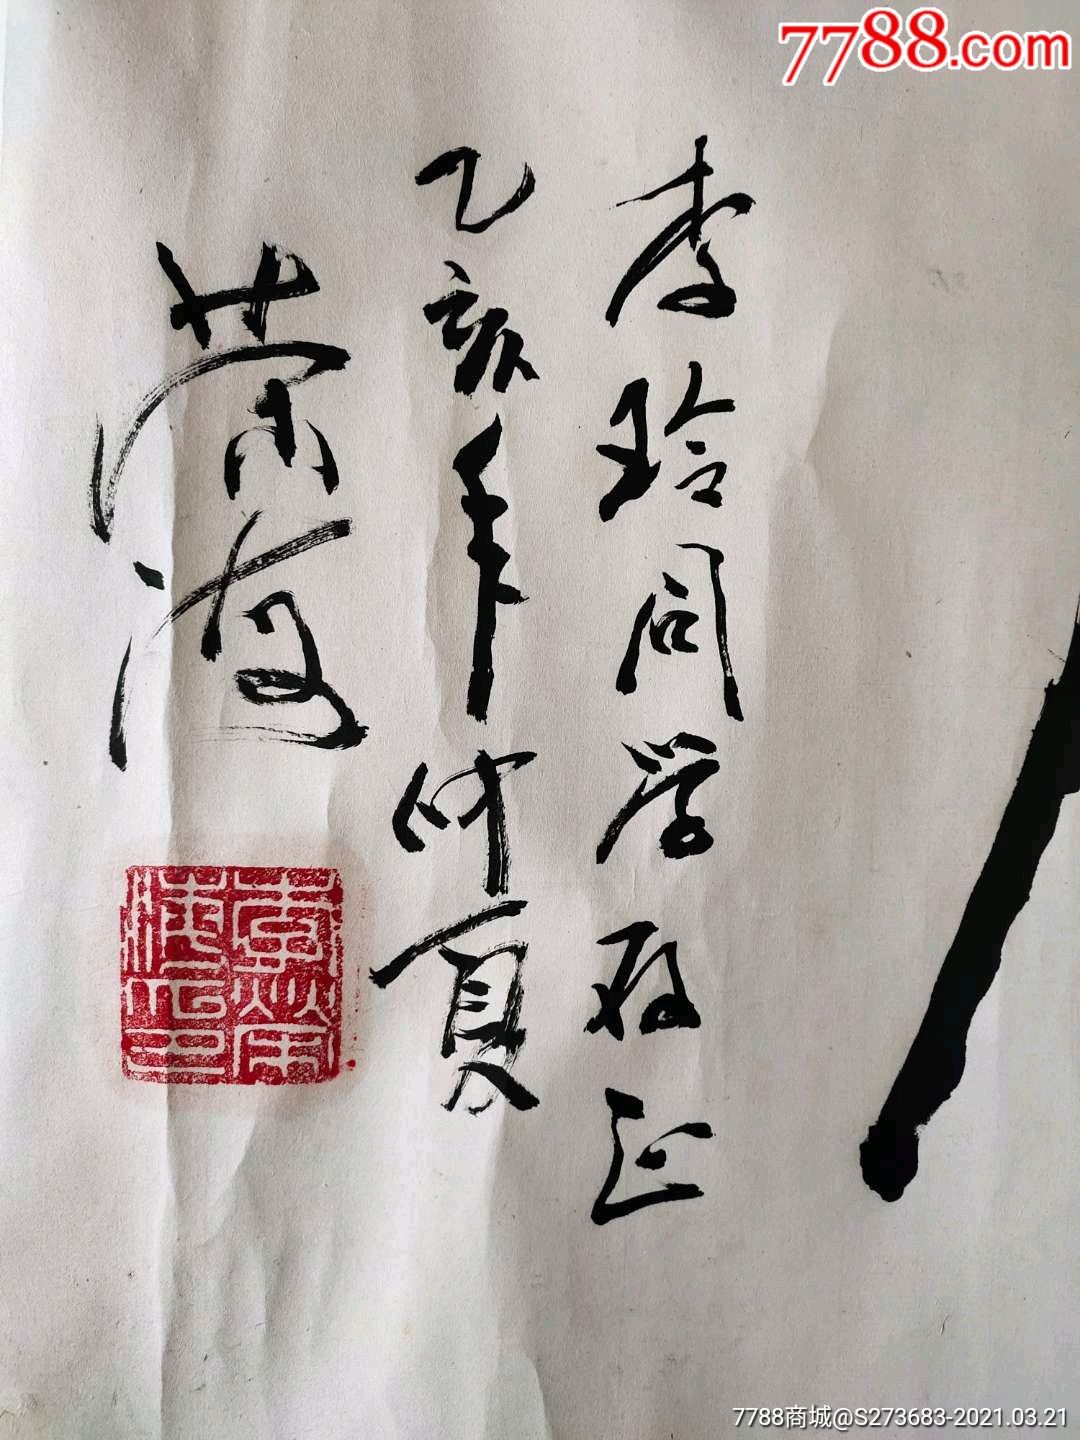 7788.com
李玲同学教正
乙亥年仲夏
荣海
7788商城@S273683-2021.03.21